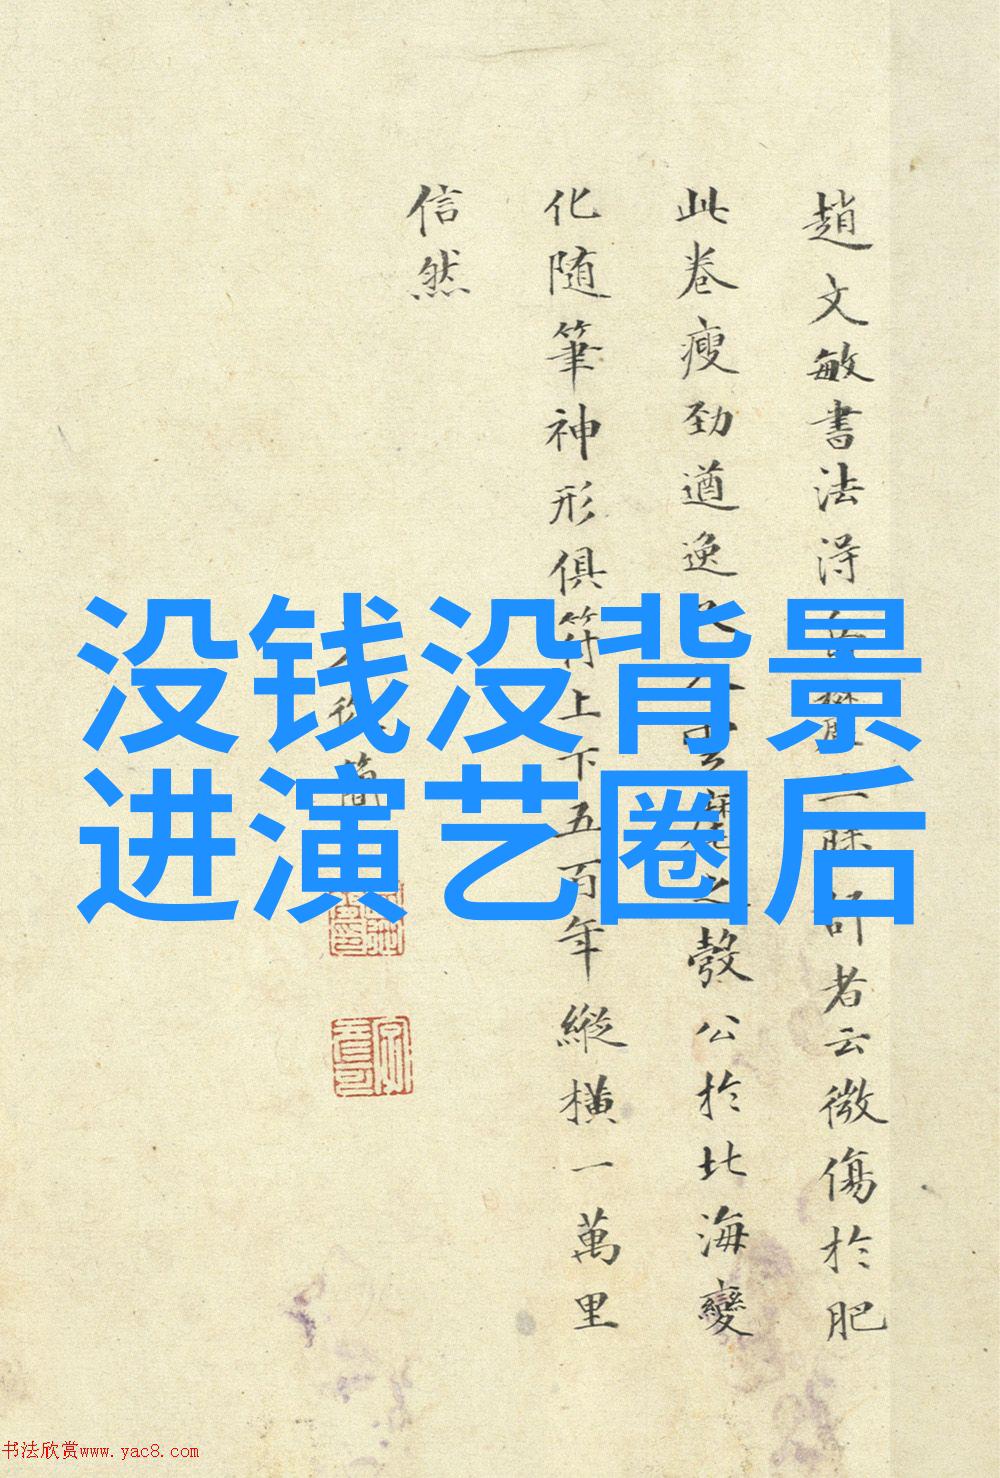 没钱没背景
进演艺圈后
趙文敏書法淂者云微傷於肥
此卷瘦勁遒逸之彀公於北海變
化随筆神形俱符上下五百年縱橫一萬里
信然
书法欣赏www.yac8.com